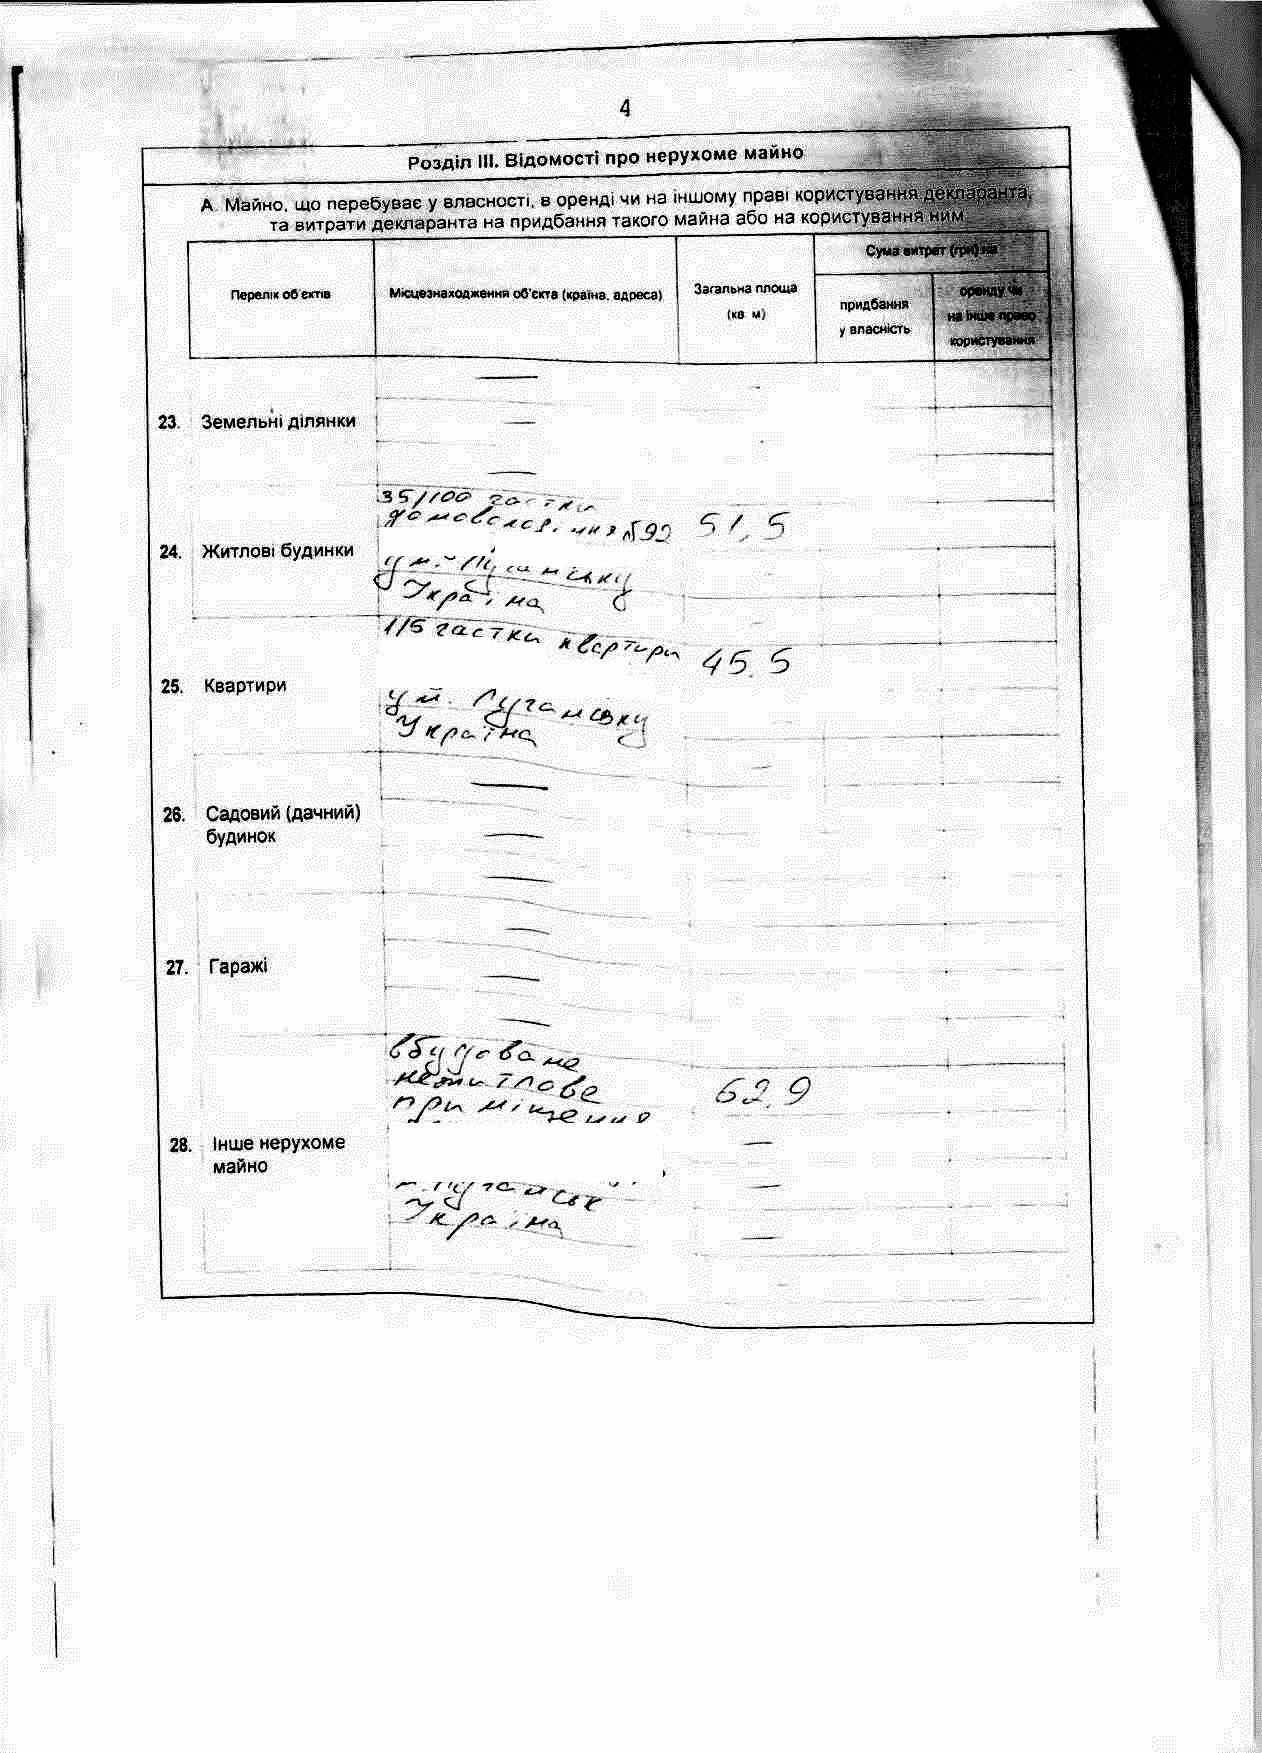 4
Розділ III. Відомості про нерухоме майно
А. Майно, що перебуває у власності, в оренді чи на іншому праві користування декларанта,
та витрати декларанта на придбання такого майна або на користування ним
Перелік об'єктів
Місцезнаходження об'єкта (країна, адреса)
Загальна площа
(кв. м)
Сума витрат (грн) на
придбання
у власність
оренду чи
на інше право
користування
23. Земельні ділянки
—
—
—
24. Житлові будинки
35/100 частки
51,5
у м. Луганську
Україна
25. Квартири
1/5 частки квартири
45.5
у м. Луганську
Україна
26. Садовий (дачний)
будинок
—
—
—
27. Гаражі
—
—
—
28. Інше нерухоме
майно
вбудоване
нежитлове
приміщення
62.9
—
м. Луганськ
—
Україна
—